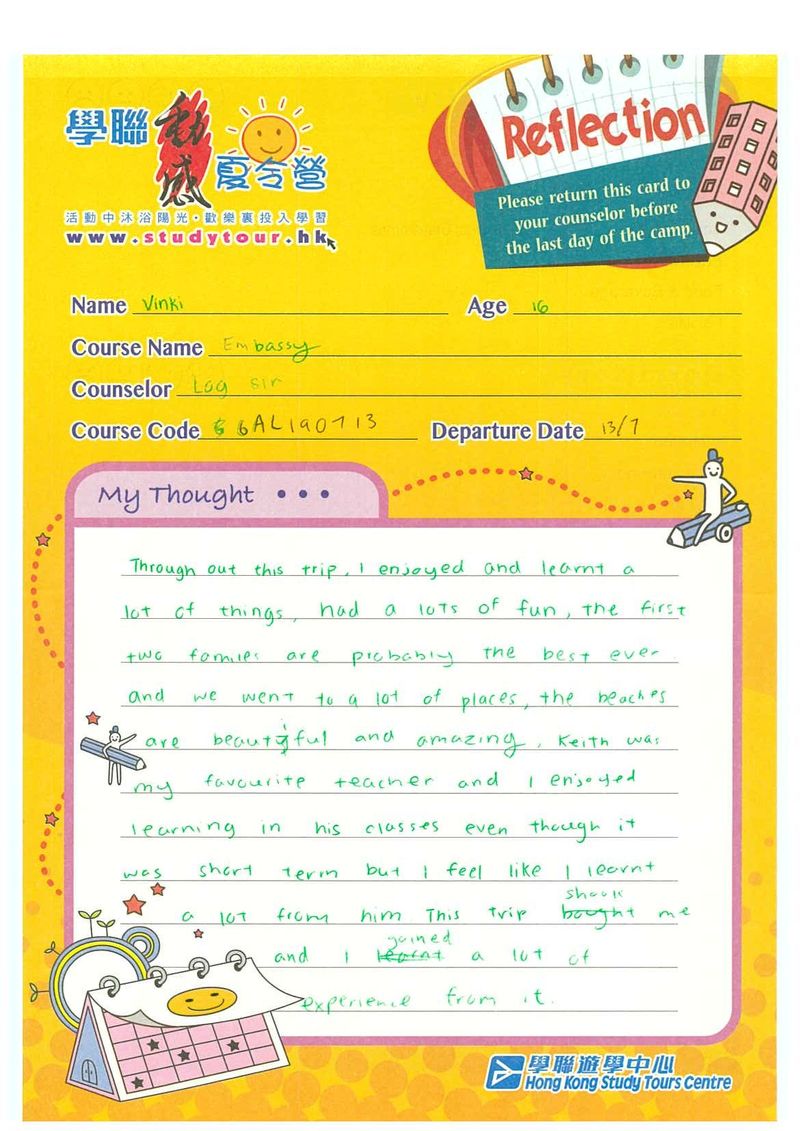 學聯動感夏令營
活動中沐浴陽光·歡樂裏投入學習
www.studytour.hk
Reflection
Please return this card to
your counselor before
the last day of the camp.
Name Vinki Age 16
Course Name Embassy
Counselor Log sir
Course Code 6AL190713 Departure Date 13/7
My Thought • • •
Through out this trip, I enjoyed and learnt a
lot of things, had a lots of fun, the first
two familes are probably the best ever
and we went to a lot of places, the beaches
are beautiful and amazing. Keith was
my favourite teacher and I enjoyed
learning in his classes even though it
was short term but I feel like I learnt
a lot from him This trip shook me
and I gained a lot of
experience from it.
學聯遊學中心
Hong Kong Study Tours Centre